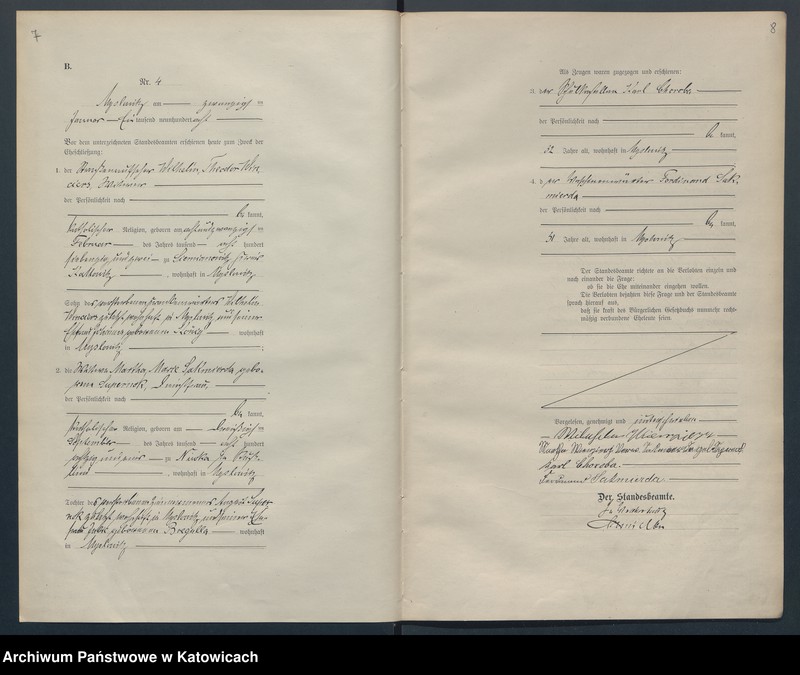 7
B.
Nr. 4
Myslowitz am zwanzigsten
Januar Ein tausend neunhundert acht
Vor dem unterzeichneten Standesbeamten erschienen heute zum Zweck der
Eheschließung:
1. der Wilhelm, Theodor
Witwer
der Persönlichkeit nach
be kannt,
katholischer Religion, geboren am achtundzwanzigsten
Februar des Jahres tausend acht hundert
siebenzig und zwei zu Siemianowitz, Kreis
Kattowitz, wohnhaft in Myslowitz
Sohn des verstorbenen Wilhelm
zuletzt wohnhaft in Myslowitz und seiner
Ehefrau Johanna, geborenen König, wohnhaft
in Myslowitz;
2. die Witwe Martha, Marie Sakmierda, gebo-
rene Supernok,
der Persönlichkeit nach
be kannt,
katholischer Religion, geboren am dreißigsten
September des Jahres tausend acht hundert
achtzig und zu
, wohnhaft in Myslowitz
Tochter des verstorbenen August Super-
nok zuletzt wohnhaft in Myslowitz und seiner Ehe-
frau geborenen Bregulla wohnhaft
in Myslowitz
8
Als Zeugen waren zugezogen und erschienen:
3. der Karl Choroba
der Persönlichkeit nach
be kannt,
32 Jahre alt, wohnhaft in Myslowitz
4. der Ferdinand Sak-
mierda
der Persönlichkeit nach
be kannt,
Jahre alt, wohnhaft in Myslowitz
Der Standesbeamte richtete an die Verlobten einzeln und
nach einander die Frage:
ob sie die Ehe miteinander eingehen wollen.
Die Verlobten bejahten diese Frage und der Standesbeamte
sprach hierauf aus,
daß sie kraft des Bürgerlichen Gesetzbuchs nunmehr recht-
mäßig verbundene Eheleute seien.
Vorgelesen, genehmigt und unterschrieben
Wilhelm
Karl Choroba
Ferdinand Sakmierda
Der Standesbeamte.
In Vertretung
Archiwum Państwowe w Katowicach